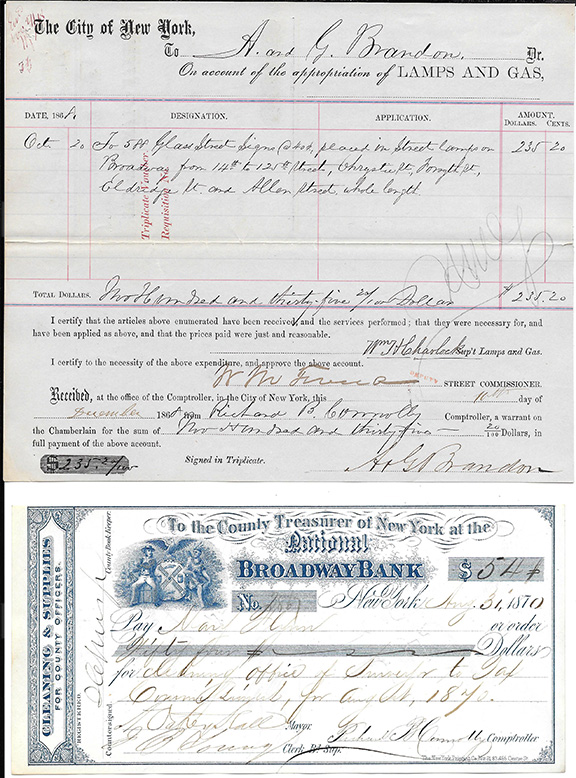 The City of New York,
To A. and G. Brandon, Dr.
On account of the appropriation of LAMPS AND GAS,
DATE, 1868. DESIGNATION. APPLICATION. AMOUNT.
DOLLARS. CENTS.
Oct. 20 To 588 Glass Street Signs placed in Street lamps on 235 20
Broadway from 14th to 125th Street, Chrystie St, Forsyth St,
Eldridge St. and Allen Street whole length
Triplicate Voucher
Requisition No.
TOTAL DOLLARS. Two Hundred and thirty-five 20/100 Dollars $235.20
I certify that the articles above enumerated have been received, and the services performed; that they were necessary for, and
have been applied as above, and that the prices paid were just and reasonable.
Sup't Lamps and Gas.
I certify to the necessity of the above expenditure, and approve the above account.
DEPUTY STREET COMMISSIONER.
Received, at the office of the Comptroller, in the City of New York, this day of
December 1868 from Richard B. Connolly Comptroller, a warrant on
the Chamberlain for the sum of Two Hundred and thirty five 20/100 Dollars, in
full payment of the above account.
$235.20/100 Signed in Triplicate. A & G Brandon
To the County Treasurer of New York at the
National
BROADWAY BANK $54
No. New York Aug. 31, 1870
Pay Mary or order
Fifty four Dollars
for Cleaning office of
for August, 1870
A. Oakey Hall Mayor
Richard B Connolly Comptroller
Young Clerk Bd. Sup.
CLEANING & SUPPLIES
FOR COUNTY OFFICERS.
REGISTERED.
Countersigned
County Book Keeper.